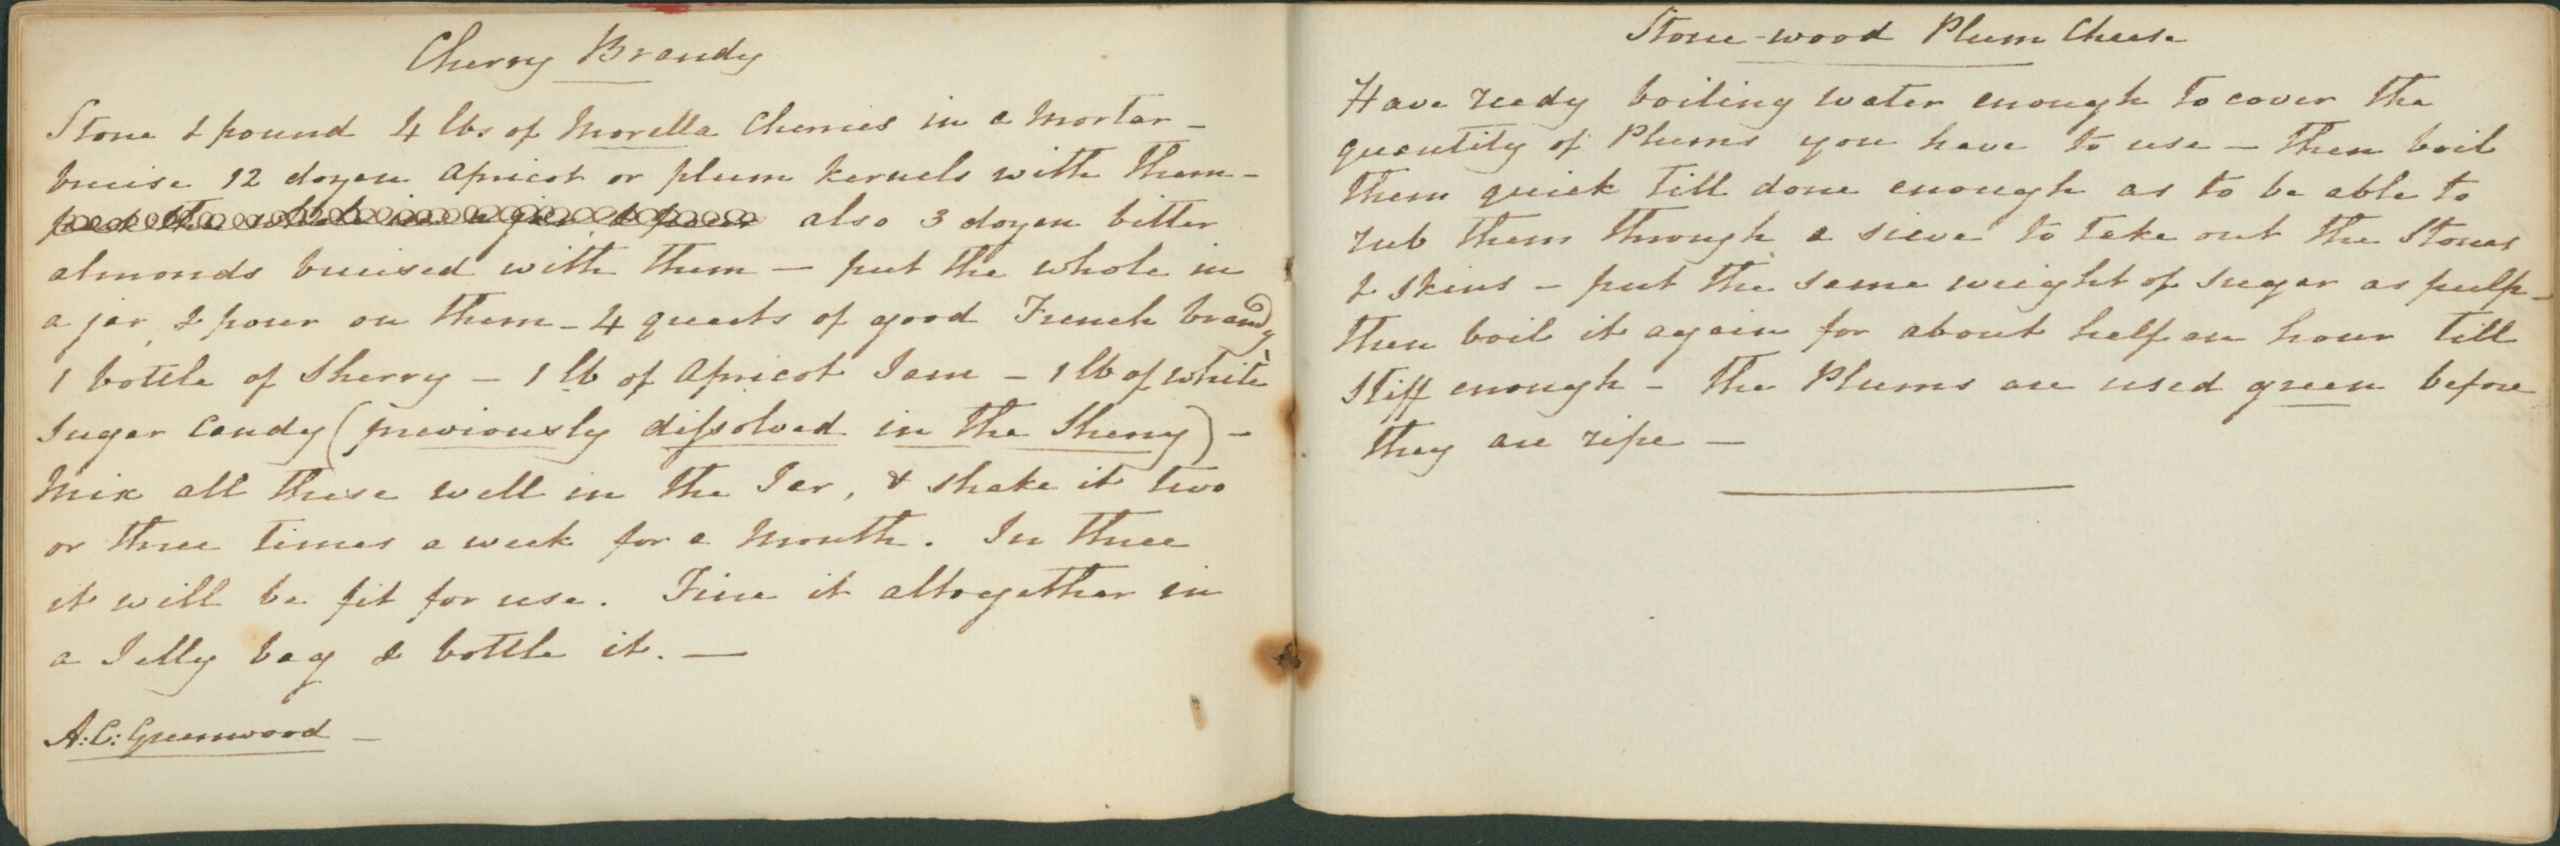 Cherry Brandy
Stone & pound 4 lbs of Morella Cherries in a Mortar -
bruise 12 dozen Apricot or plum kernels with them -
put the whole in a jar & pour also 3 dozen bitter
almonds bruised with them — put the whole in
a jar, & pour on them - 4 quarts of good French brandy
1 bottle of Sherry - 1 lb of Apricot Jam - 1 lb of white
Sugar Candy (previously dissolved in the Sherry) -
Mix all these well in the Jar, & shake it two
or three times a week for a Month. In three
it will be fit for use. Fine it altogether in
a Jelly bag & bottle it. —
A: C: Greenwood -
Stone-wood Plum Cheese
Have ready boiling water enough to cover the
quantity of Plums you have to use - then boil
them quick till done enough as to be able to
rub them through a sieve to take out the Stones
& skins - put the same weight of sugar as pulp -
then boil it again for about half an hour till
stiff enough - the Plums are used green before
they are ripe —